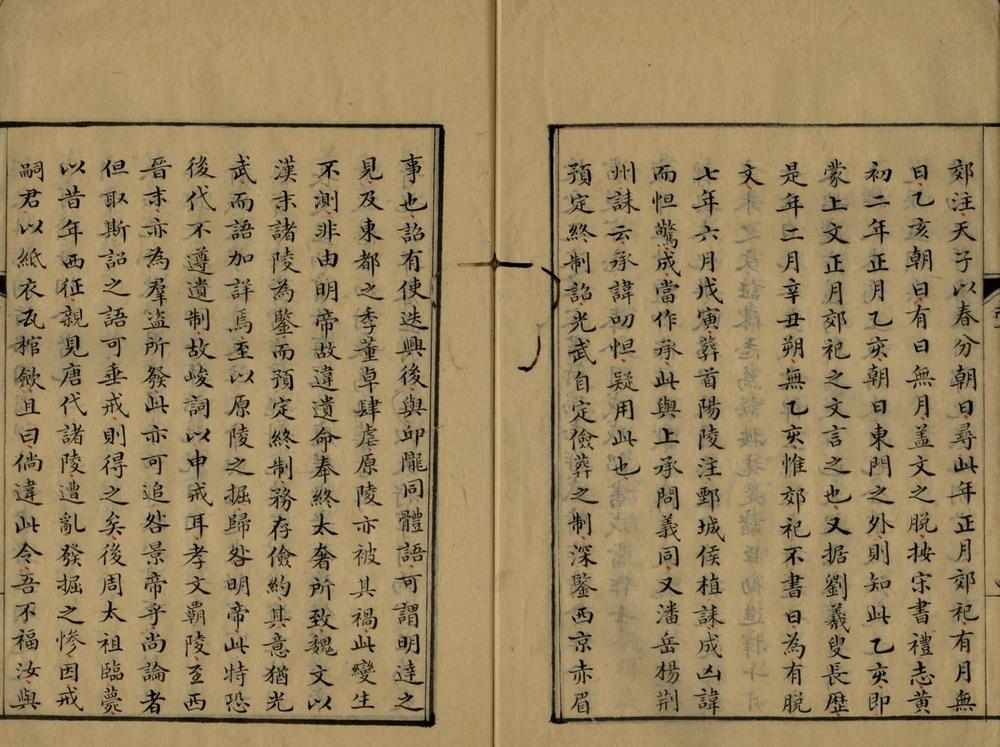 郊注天子以春分朝日尋此年正月郊祀有月無
日乙亥朝日有日無月蓋文之脫按宋書禮志黃
初二年正月乙亥朝日東門之外則知此乙亥即
蒙上文正月郊祀之文言之也又据劉羲叟長歷
是年二月辛丑朔無乙亥惟郊祀不書日為有脫
文
七年六月戊寅葬首陽陵注鄄城侯植誄成凶諱
而怛驚成當作承此與上承問義同又潘岳楊荆
州誄云承諱忉怛疑用此也
預定終制詔光武自定儉葬之制深鑒西京赤眉
事也詔有使迭興後與邱隴同體語可謂明達之
見及東都之季董卓肆虐原陵亦被其禍此變生
不測非由明帝故違遺命奉終太奢所致魏文以
漢末諸陵為鑒而預定終制務存儉約其意猶光
武而語加詳焉至以原陵之掘歸咎明帝此特恐
後代不遵遺制故峻詞以申戒耳孝文霸陵至西
晉末亦為羣盜所發此亦可追咎景帝乎尚論者
但取斯詔之語可垂戒則得之矣後周太祖臨薨
以昔年西征親見唐代諸陵遭亂發掘之慘因戒
嗣君以紙衣瓦棺歛且曰倘違此令吾不福汝與